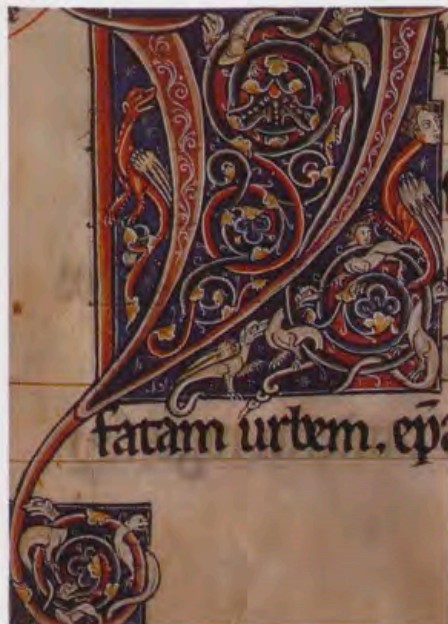 fatam urbem. ep̄a